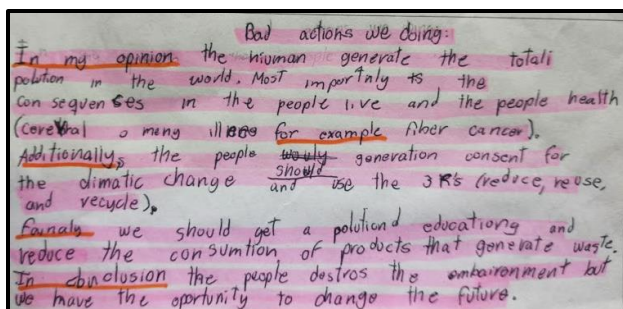 Bad actions we doing:
In my opinion the hiuman generate the totali
polution in the world. Most importnly is the
consequenses in the people live and the people health
(cerebral o meny illnes for example fiber cancer).
Additionally, the people should generation consent for
the climatic change and use the 3 R's (reduce, reuse,
and recycle).
fainaly we should get a polutiond educationg and
reduce the consumtion of products that generate waste.
In conclusion the people destros the embaironment but
we have the oportunity to change the future.